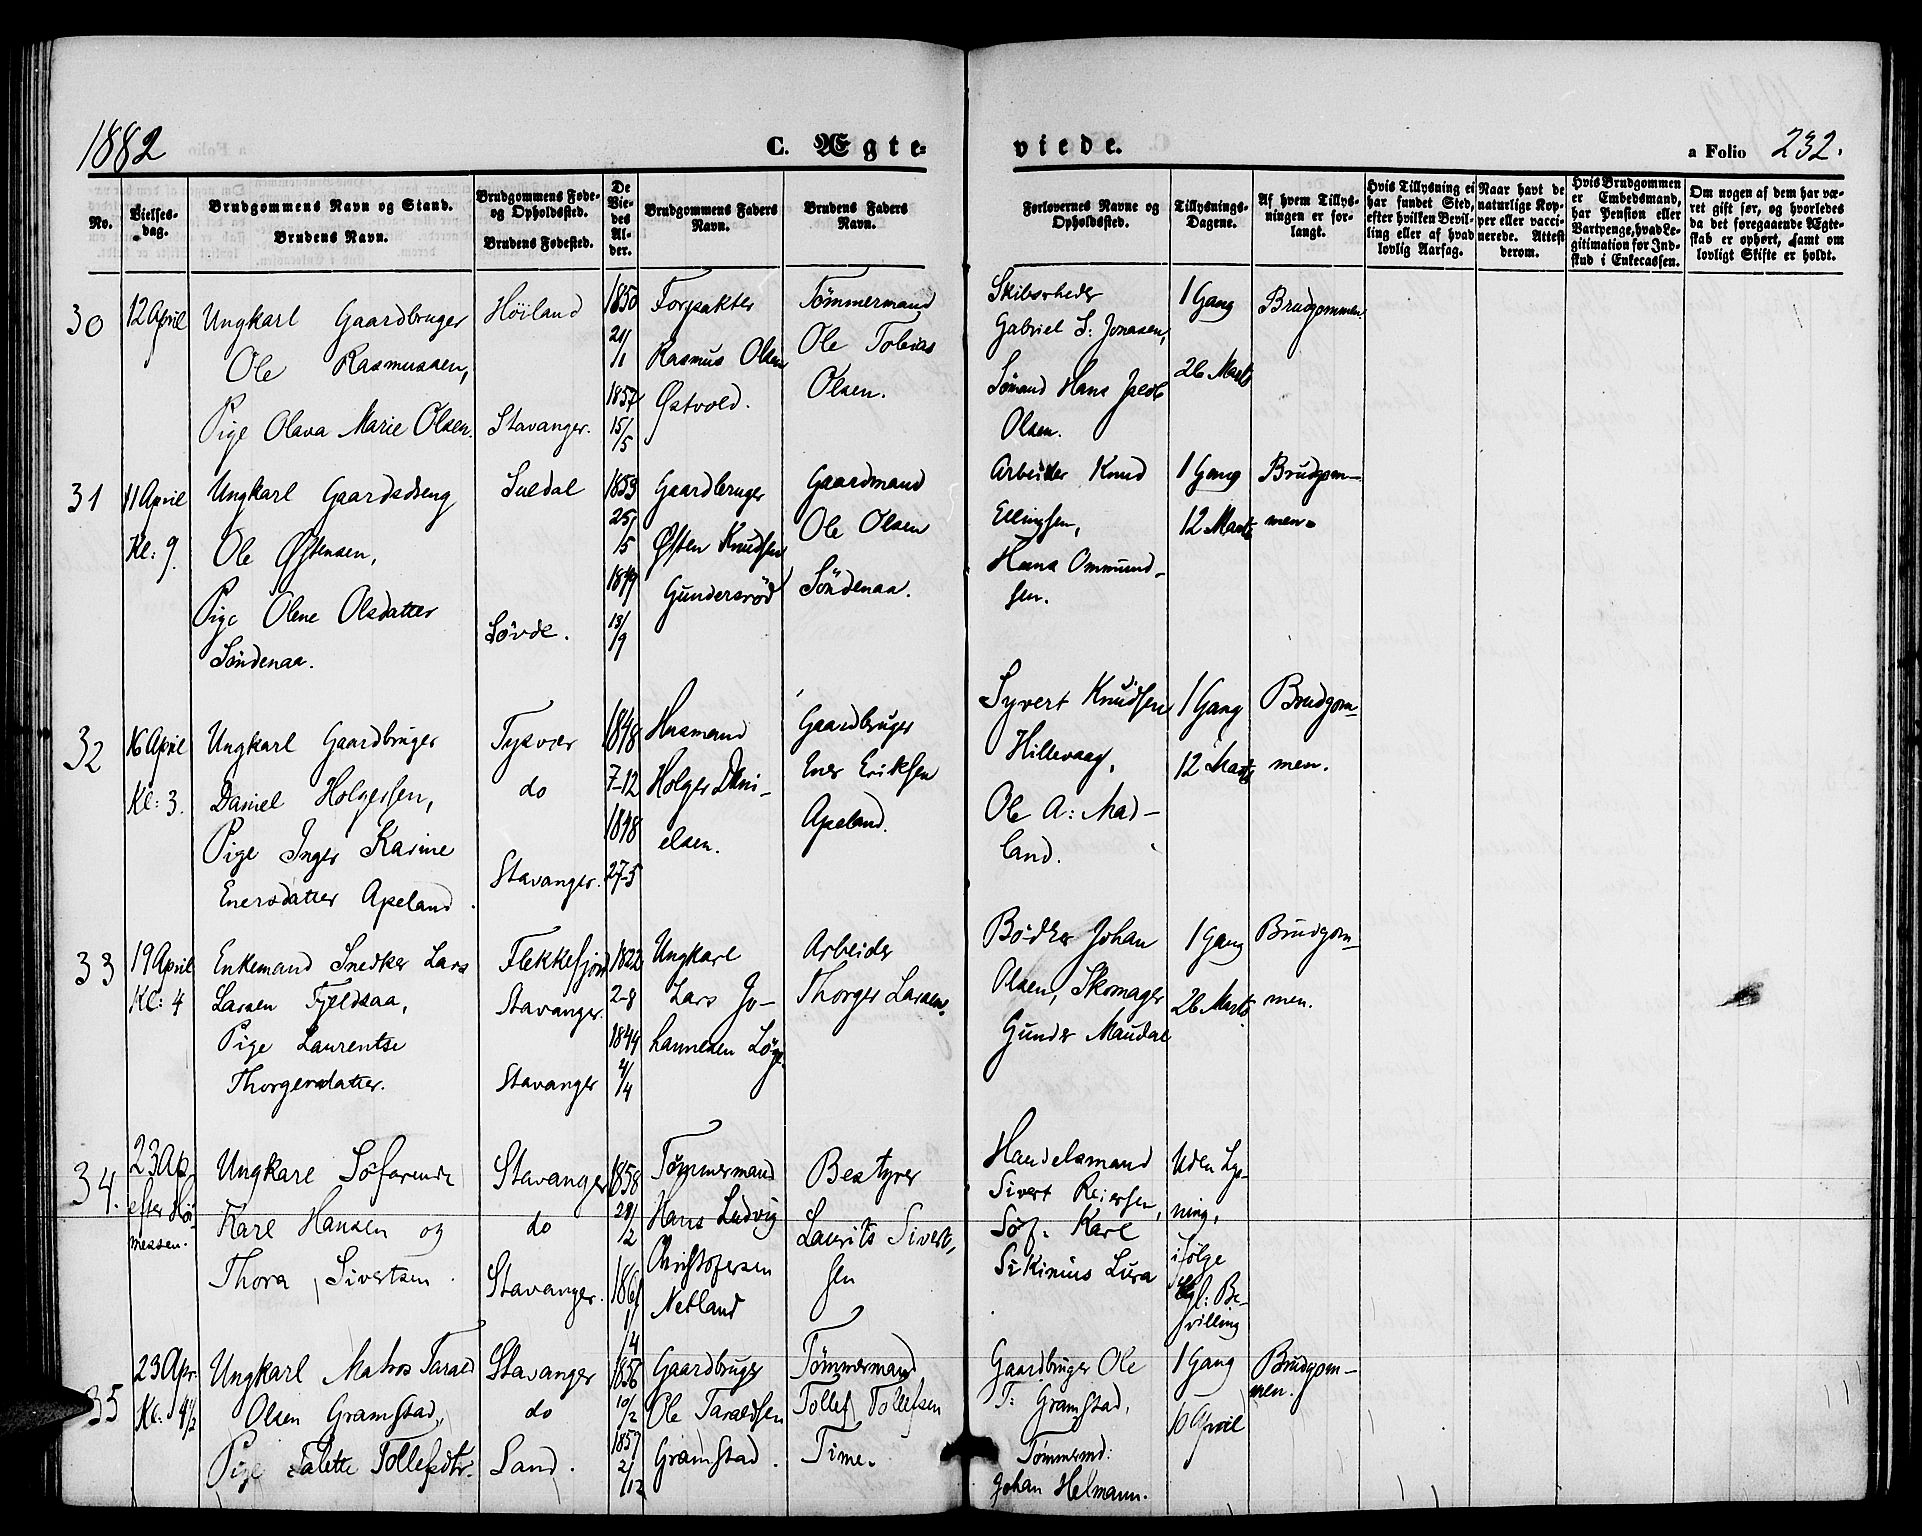 1882
C. Ægte-
viede.
a Folio 232.
No.
Vielses-
dag.
Brudgommens Navn og Stand.
Brudens Navn.
Brudgommens Føde-
og Opholdssted.
Brudens Fødested.
De
Vie-
des
Al-
der.
Brudgommens Faders
Navn.
Brudens Faders
Navn.
Forlovernes Navne og
Opholdssted.
Tillysnings-
Dagene.
Af hvem Tillys-
ningen er for-
langt.
Hvis Tillysning ei
har fundet Sted,
efter hvilken Bevil-
ling eller af hvad
lovlig Aarsag.
Naar havt de
naturlige Kop-
per eller vacci-
nerede. Attest
derom.
Hvis Brudgommen
er Embedsmand,
har Pension eller
Vartpenge, hvad Le-
gitimation for Ind-
skud i Enkecassen.
Om nogen af dem har væ-
ret gift før, og hvorledes
da det foregaaende Ægte-
skab er ophørt, samt om
lovligt Skifte er holdt.
30
12 April
Ungkarl Gaardbruger
Ole Rasmussen,
Pige Olava Marie Olsen.
Höiland
Stavanger.
1850
21/1
1857
15/5
Forpakter
Rasmus Olsen
Østvold.
Tømmermand
Ole Tobias
Olsen.
Skibsrheder
Gabriel S: Jonasen,
Sömand Hans Jacob
Olsen.
1 Gang
26 Marts
Brudgommen.
31
11 April
Kl: 9.
Ungkarl Gaardsdreng
Ole Østensen,
Pige Olene Olsdatter
Söndenaa.
Suldal
Søvde.
1859
25/5
1849
13/9
Gaardbruger
Østen Knudsen
Gundersröd
Gaardmand
Ole Olsen
Söndenaa.
Arbeider Knud
Ellingsen,
Hans Ommund-
sen.
1 Gang
12 Marts
Brudgom-
men.
32
16 April
Kl: 3.
Ungkarl Gaardbruger
Daniel Holgersen,
Pige Inger Karine
Enersdatter Apeland.
Tysvær
do
Stavanger.
1848
7-12
1848
27-5
Husmand
Holger Dani-
elsen.
Gaardbruger
Ener Eriksen
Apeland.
Syvert Knudsen
Hillevaag,
Ole A: Mad-
land.
1 Gang
12 Marts
Brudgom-
men.
33
19 April
Kl: 4
Enkemand Snedker Lars
Larsen Fjeldsaa,
Pige Laurentse
Thorgersdatter.
Flekkefjord
Stavanger.
Stavanger
1822
2-8
1844
4/4
Ungkarl
Lars Jo-
hannesen Löge
Arbeider
Thorger Larsen.
Bødker Johan
Olsen, Skomager
Gunder Maudal
1 Gang
26 Marts.
Brudgom-
men.
34.
23 Ap
efter Hö
messen.
Ungkarl Söfarende
Karl Hansen og
Thora Sivertsen.
Stavanger
do
Stavanger.
1858
28/2
1861
1/4
Tømmermand
Hans Ludvig
Christofersen
Netland
Bestyrer
Laurits Sivert,
sen
Handelsmand
Sivert Reiersen,
Söf. Karl
Sikinius Lura
Uden Lys-
ning,
ifølge
kgl: Be-
villing
35
23 Apr.
Kl: 4 1/2
Ungkarl Matros Tarald
Olsen Gramstad,
Pige Talette Tollefsdtr.
Stavanger
do
Sand.
1856
10/2
1857
2/12
Gaardbruger
Ole Taraldsen
Gramstad.
Tømmermand
Tollef Tollefsen
Time.
Gaardbruger Ole
T: Gramstad,
Tømmermd:
Johan Helmann.
1 Gang
10 April
Brudgom-
men.